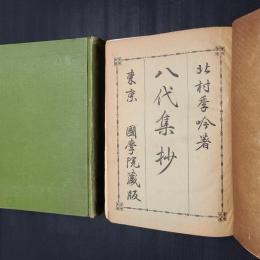 北村季吟著
八代集抄
東京 國學院藏版